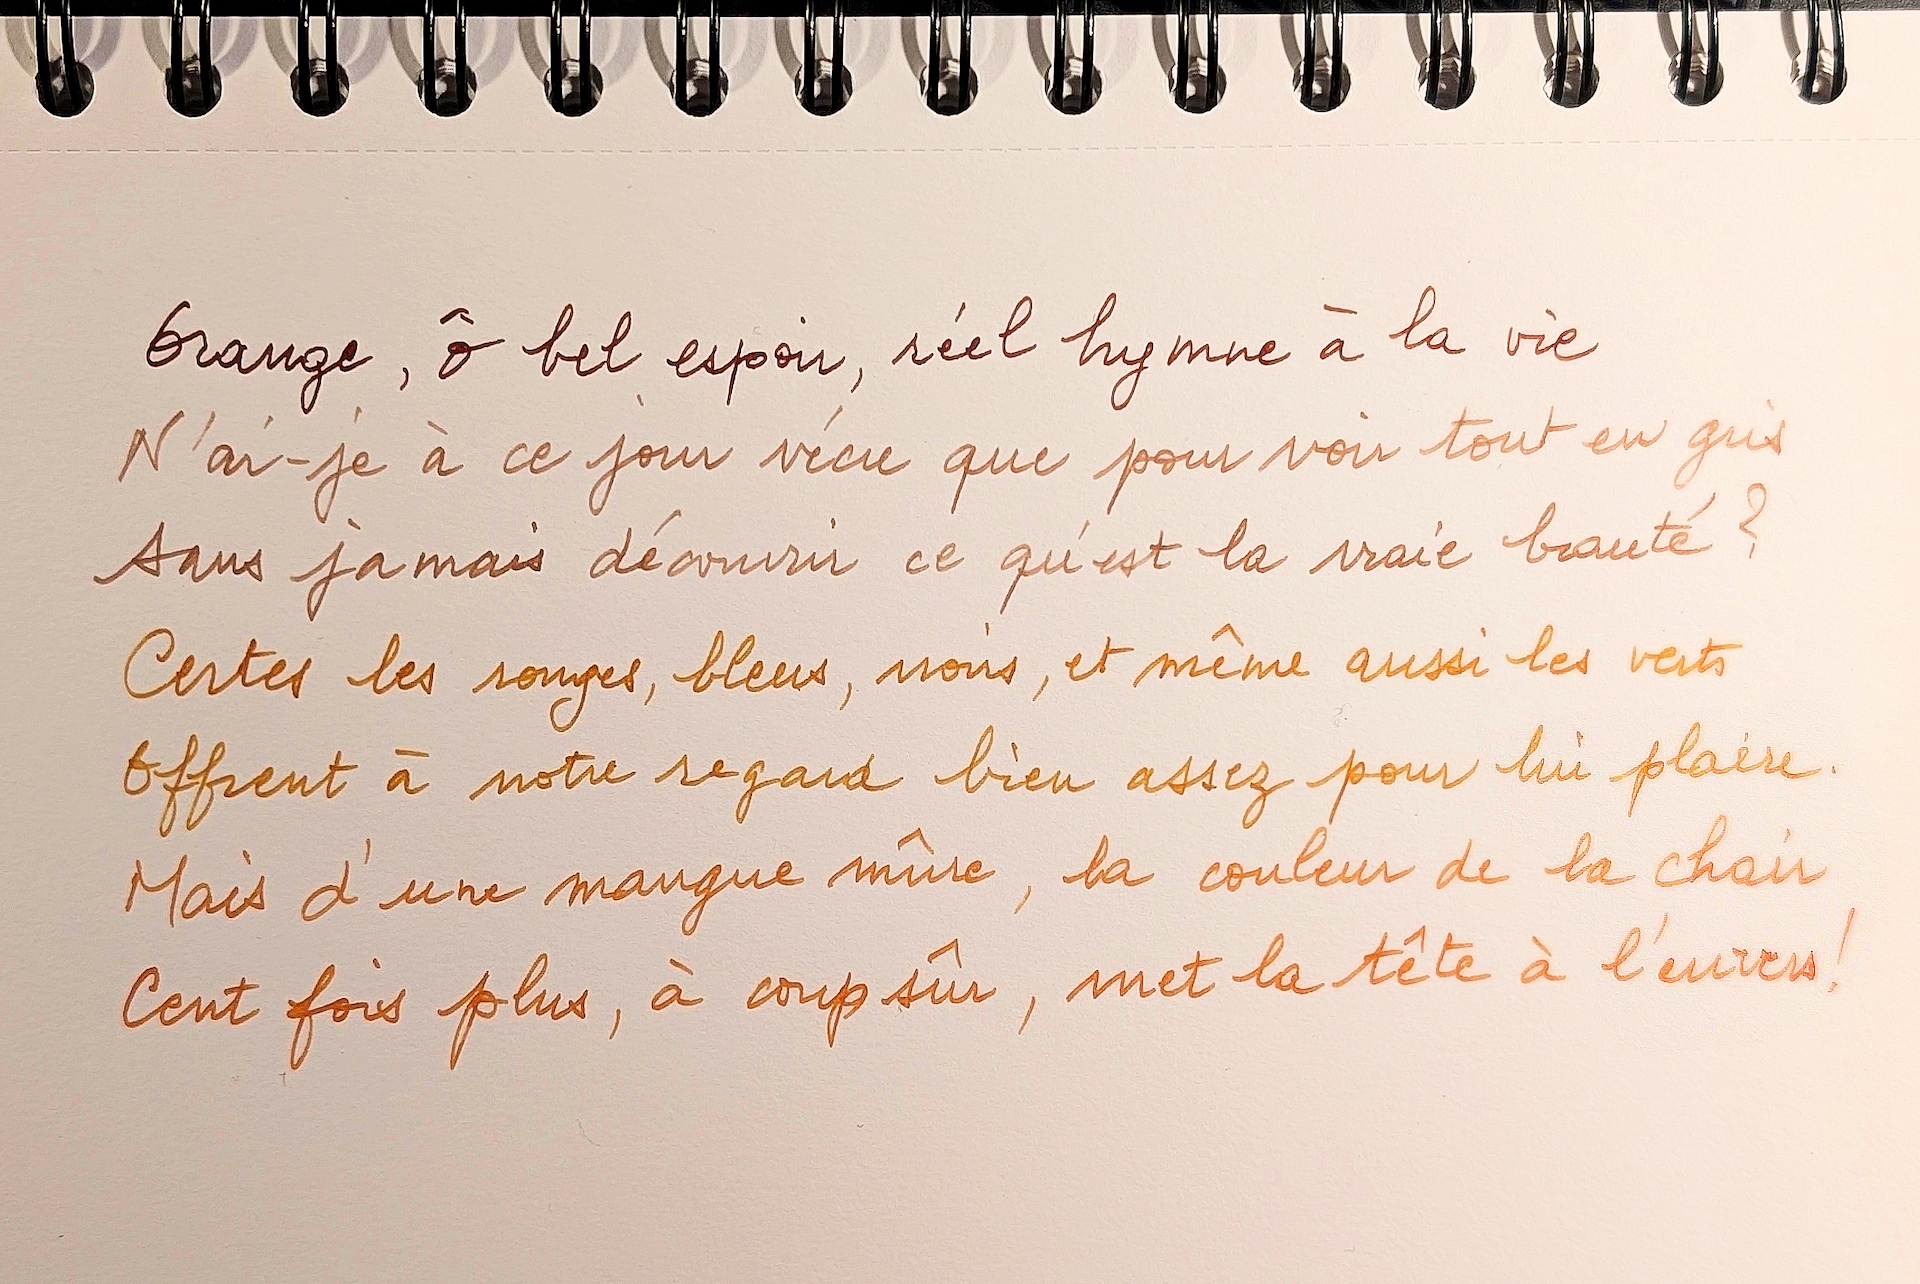 Orange, ô bel espoir, réel hymne à la vie
N'ai-je à ce jour vécu que pour voir tout en gris
Sans jamais découvrir ce qu'est la vraie beauté ?
Certes les rouges, bleus, noirs, et même aussi les verts
Offrent à notre regard bien assez pour lui plaire.
Mais d'une mangue mûre, la couleur de la chair
Cent fois plus, à coup sûr, met la tête à l'envers !